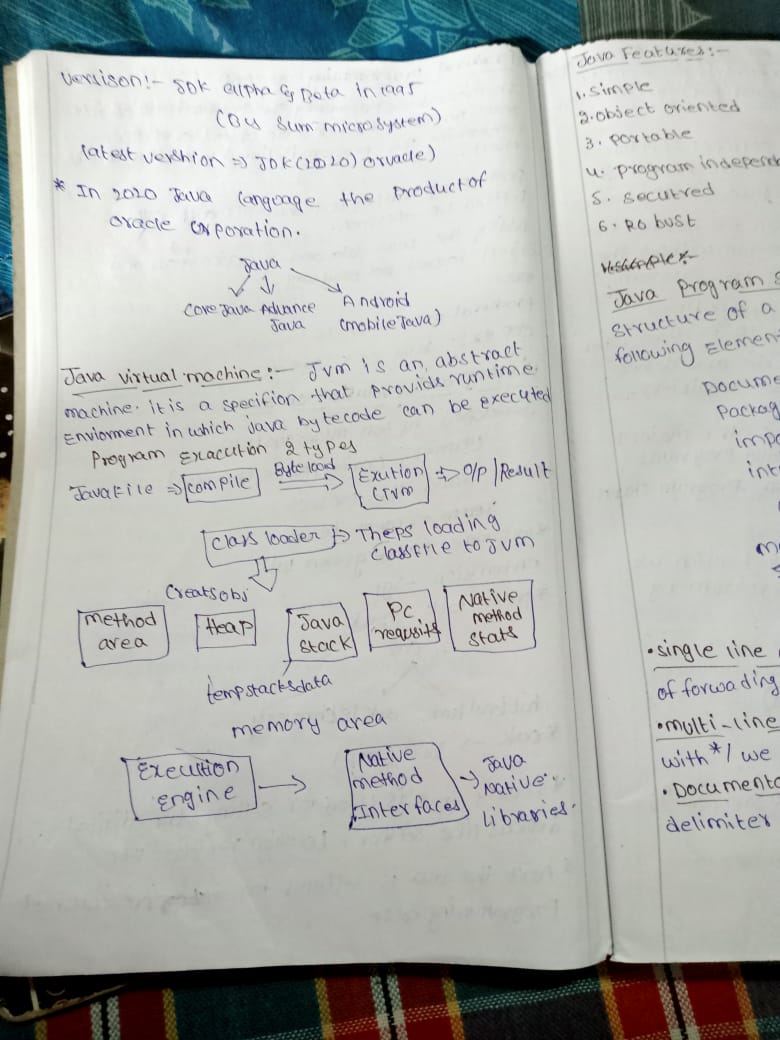 version:- JDK alpha & Beta in 1995
(by Sum microsystem)
latest vershion => JDK(2020) oracle)
* In 2020 Java language the product of
oracle corporation.
Java
Core Java Advance Java Android (mobile Java)
Java virtual machine:- Jvm is an abstract
machine. it is a specifion that provids runtime
Enviorment in which java bytecode can be executed
Program Execution 2 types
Java File => compile Byte load => Exution (JVM => O/P | Result
class loader => Theps loading
classfile to Jvm
Creatsobj
method area Heap Java stack Pc Native method stats
temp stacks data
memory area
Execution Engine → Native method Interfaces → Java Native Libraries.
Java Features:-
1. simple
2. object oriented
3. portable
4. program independ
5. secutred
6. Robust
Java Program S
structure of a
following Elemen
Docume
Packag
impo
int
m
• single line
of forwading
• multi-line
with */ we
• Documenta
delimiter